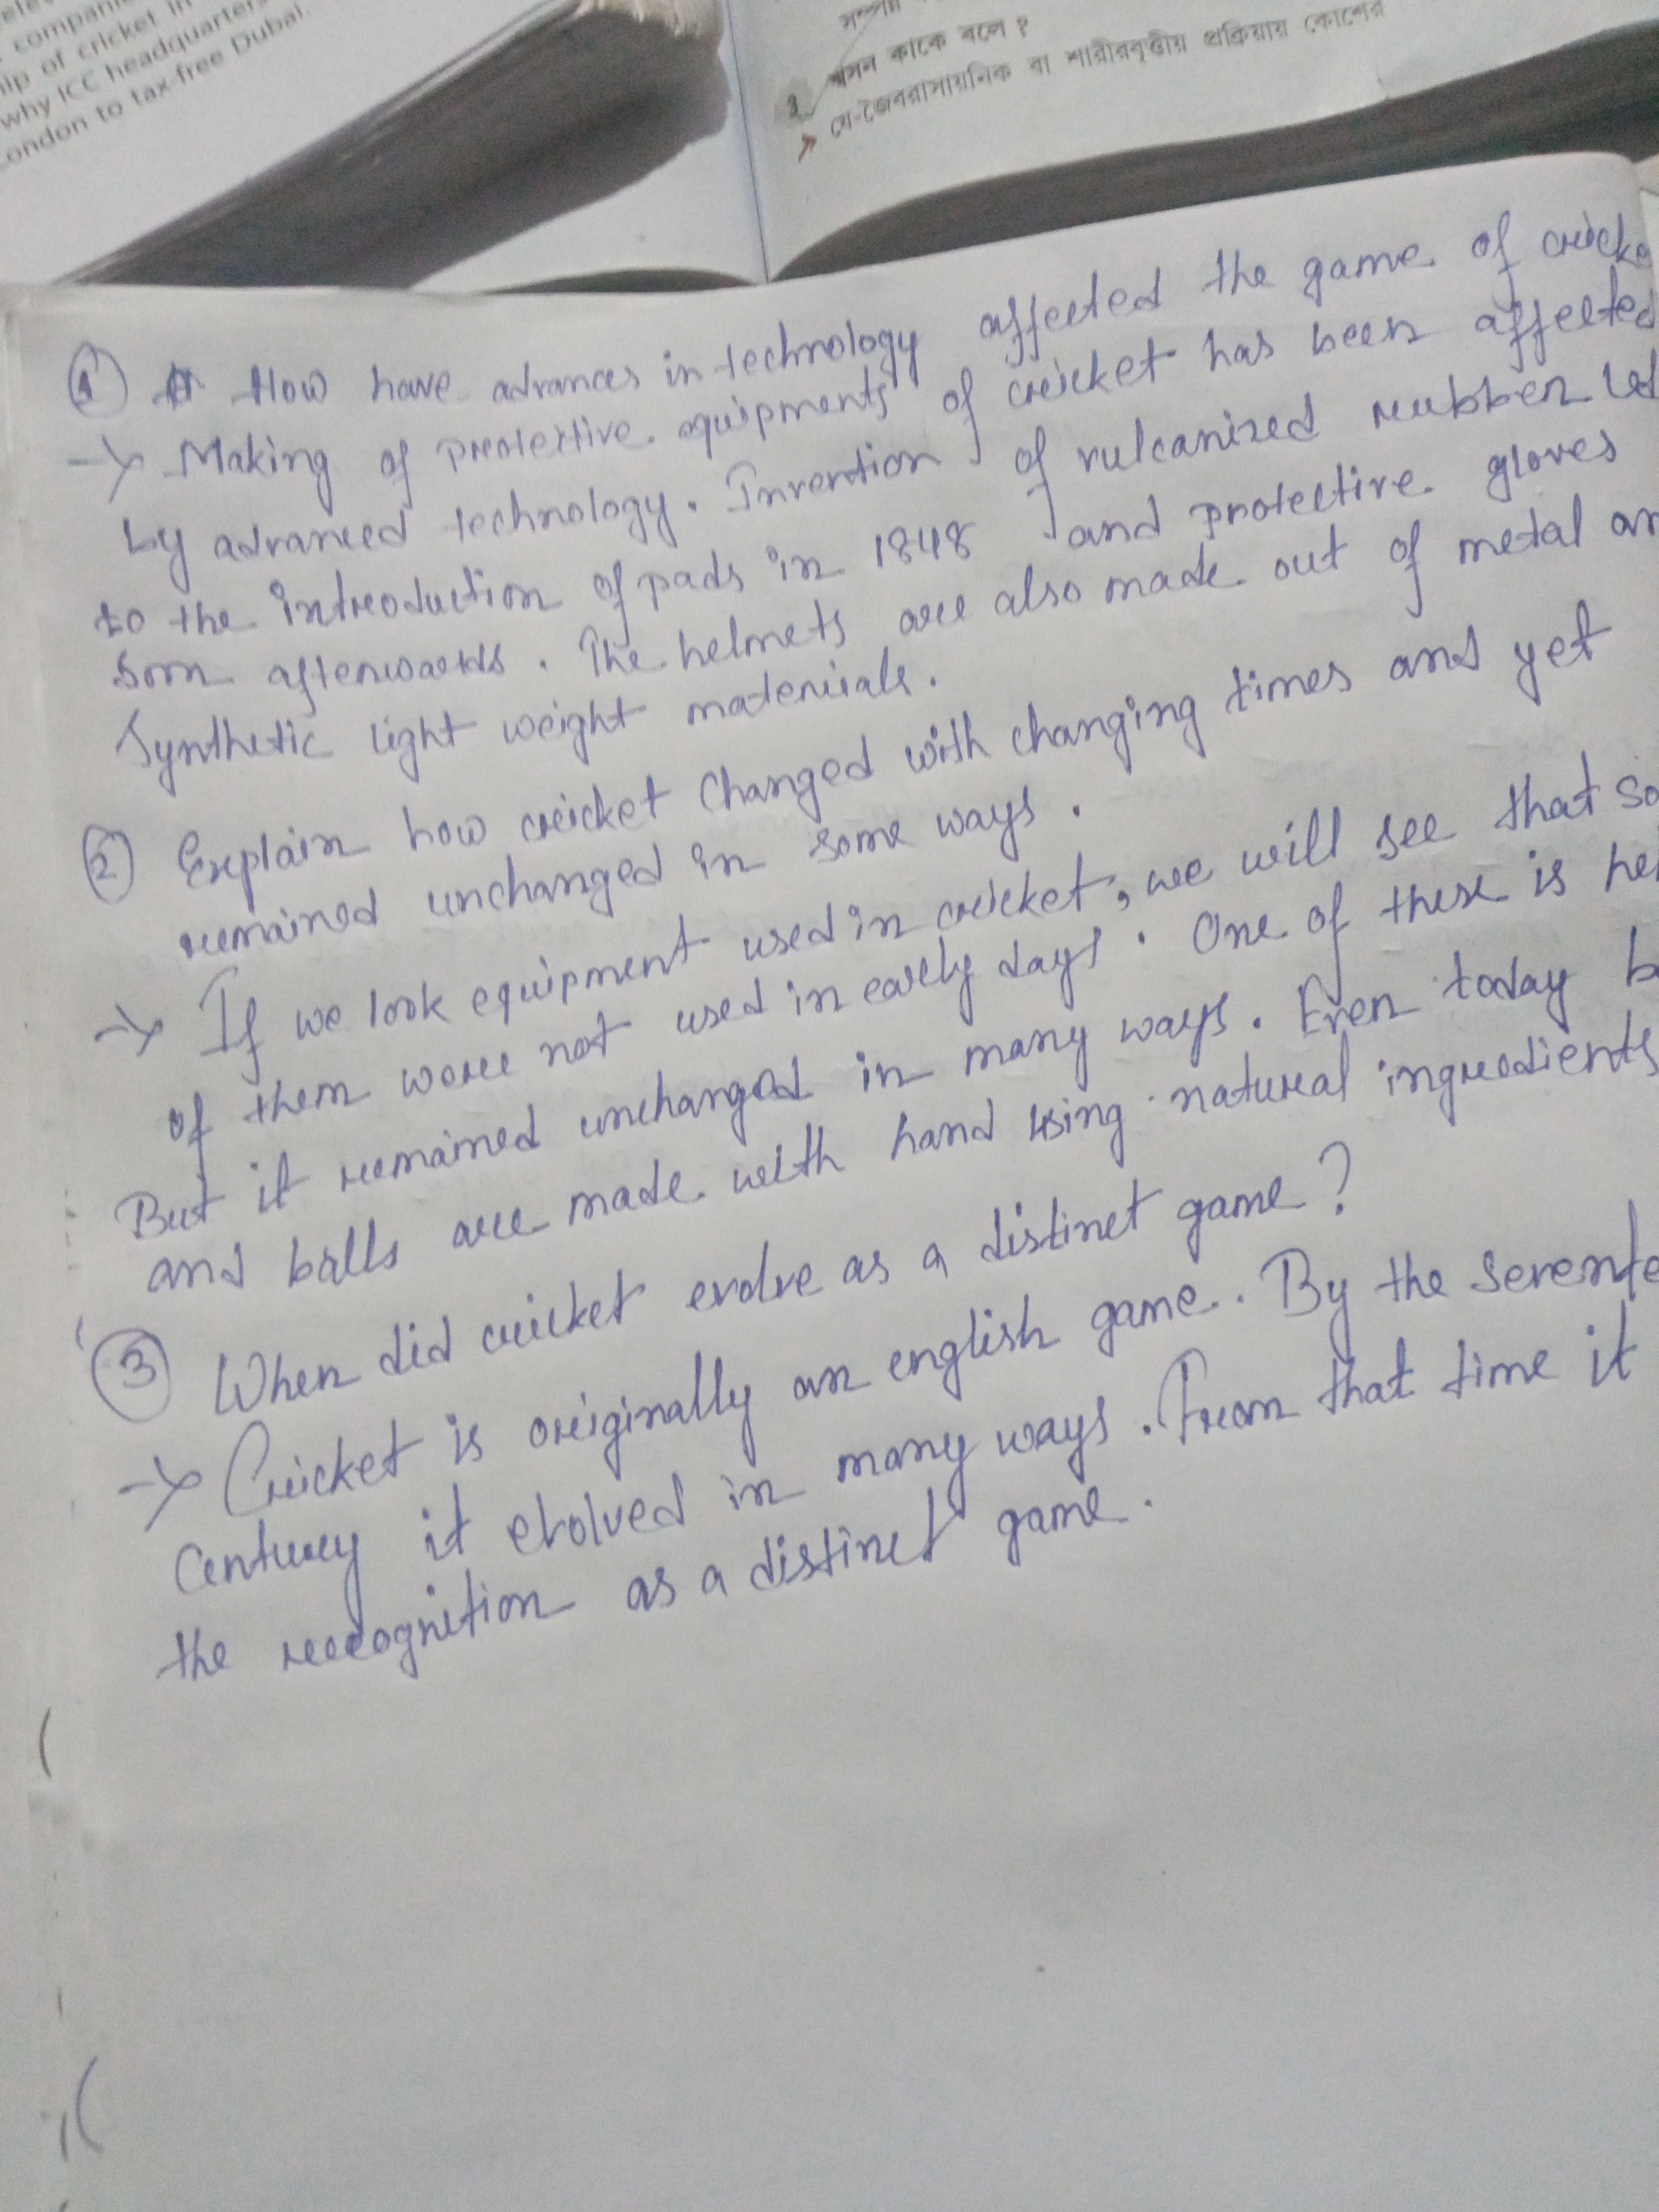 compani
ip of cricket in
why ICC headquarters
ondon to tax-free Dubai.
শ্বসন কাকে বলে ?
যে-জৈবরাসায়নিক বা শারীরবৃত্তীয় প্রক্রিয়ায় কোশের
① How have advances in technology affected the game of cricke
→ Making of protective equipments of cricket has been affected
by advanced technology. Invention of vulcanized rubber led
to the introduction of pads in 1848 and protective gloves
soon afterwards. The helmets are also made out of metal an
Synthetic light weight materials.
② Explain how cricket changed with changing times and yet
remained unchanged in some ways.
→ If we look equipment used in cricket, we will see that so
of them were not used in early days. One of these is hel
But it remained unchanged in many ways. Even today b
and balls are made with hand using natural ingredients
③ When did cricket evolve as a distinct game?
→ Cricket is originally an english game. By the sevente
Century it evolved in many ways. From that time it
the recognition as a distinct game.